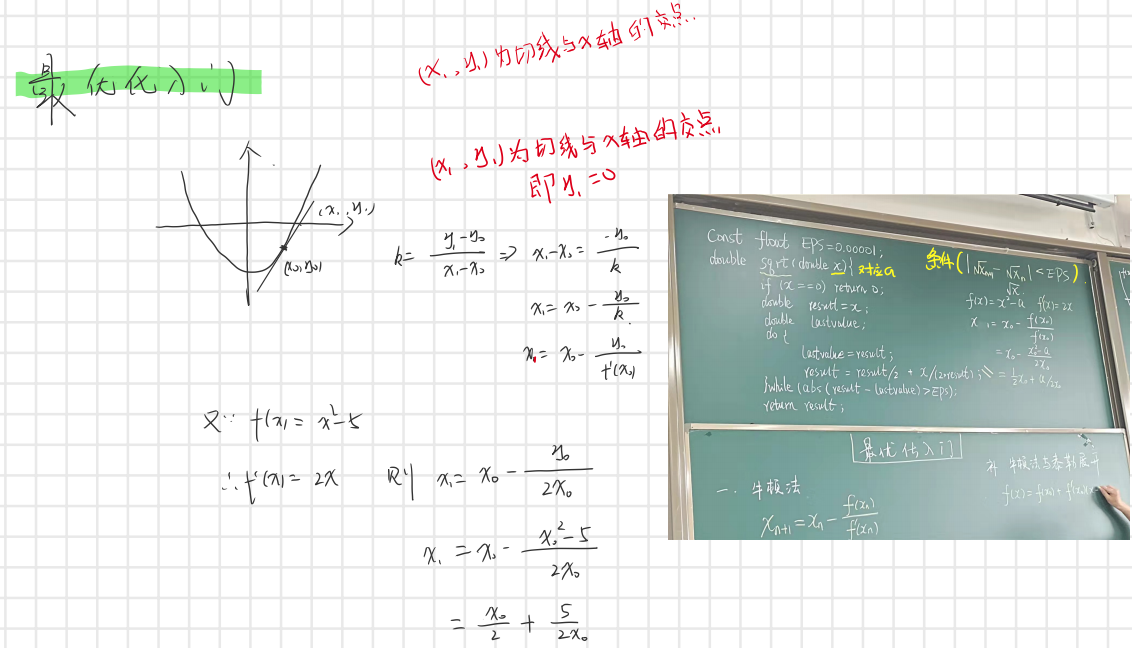 (x₁, y₁)为切线与x轴的交点
最优化入门
(x₁, y₁)为切线与x轴的交点
即 y₁=0
(x₁, y₁)
(x₀, y₀)
k = (y₁-y₀)/(x₁-x₀) ⇒ x₁-x₀ = -y₀/k
x₁ = x₀ - y₀/k
x₁ = x₀ - y₀/f'(x₀)
又∵ f(x) = x²-5
∴ f'(x) = 2x 则 x₁ = x₀ - y₀/2x₀
x₁ = x₀ - (x₀²-5)/2x₀
= x₀/2 + 5/2x₀
Const float EPS=0.00001;
double sqrt(double x){ 对应a
if (x==0) return 0;
double result=x;
double lastvalue;
do {
lastvalue=result;
result = result/2 + x/(2*result);
}while (abs(result-lastvalue)>EPS);
return result;
条件(|√xₙ₊₁ - √xₙ| < EPS)
√x
f(x)=x²-a f'(x)=2x
x₁ = x₀ - f(x₀)/f'(x₀)
= x₀ - (x₀²-a)/2x₀
= ½x₀ + a/2x₀
最优化入门
一. 牛顿法
xₙ₊₁ = xₙ - f(xₙ)/f'(xₙ)
牛顿法与泰勒展开
f(x)=f(x₀)+f'(x₀)(x